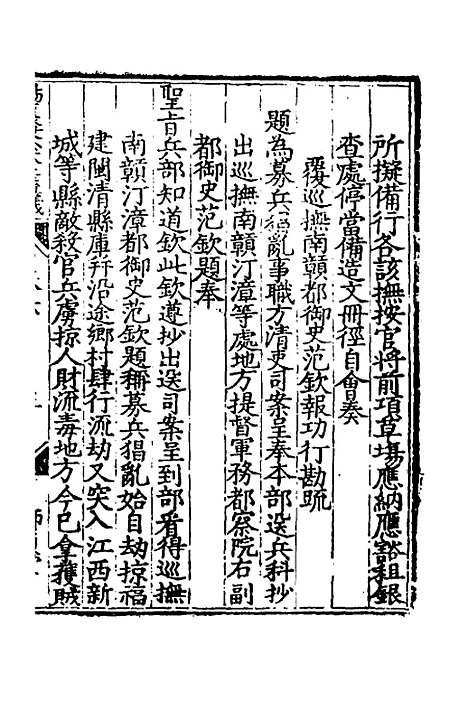 所擬備行各該撫按官將前項草場應納應豁租銀
查處停當備造文冊徑自會奏
覆巡撫南贛都御史范欽報功行勘疏
題為募兵猖亂事職方清吏司案呈奉本部送兵科抄
出巡撫南贛汀漳等處地方提督軍務都察院右副
都御史范欽題奉
聖旨兵部知道欽此欽遵抄出送司案呈到部看得巡撫
南贛汀漳都御史范欽題稱募兵猖亂始自劫掠福
建閩清縣庫并沿途鄉村肆行流劫又突入江西新
城等縣敵殺官兵虜掠人財流毒地方今已拿獲賊